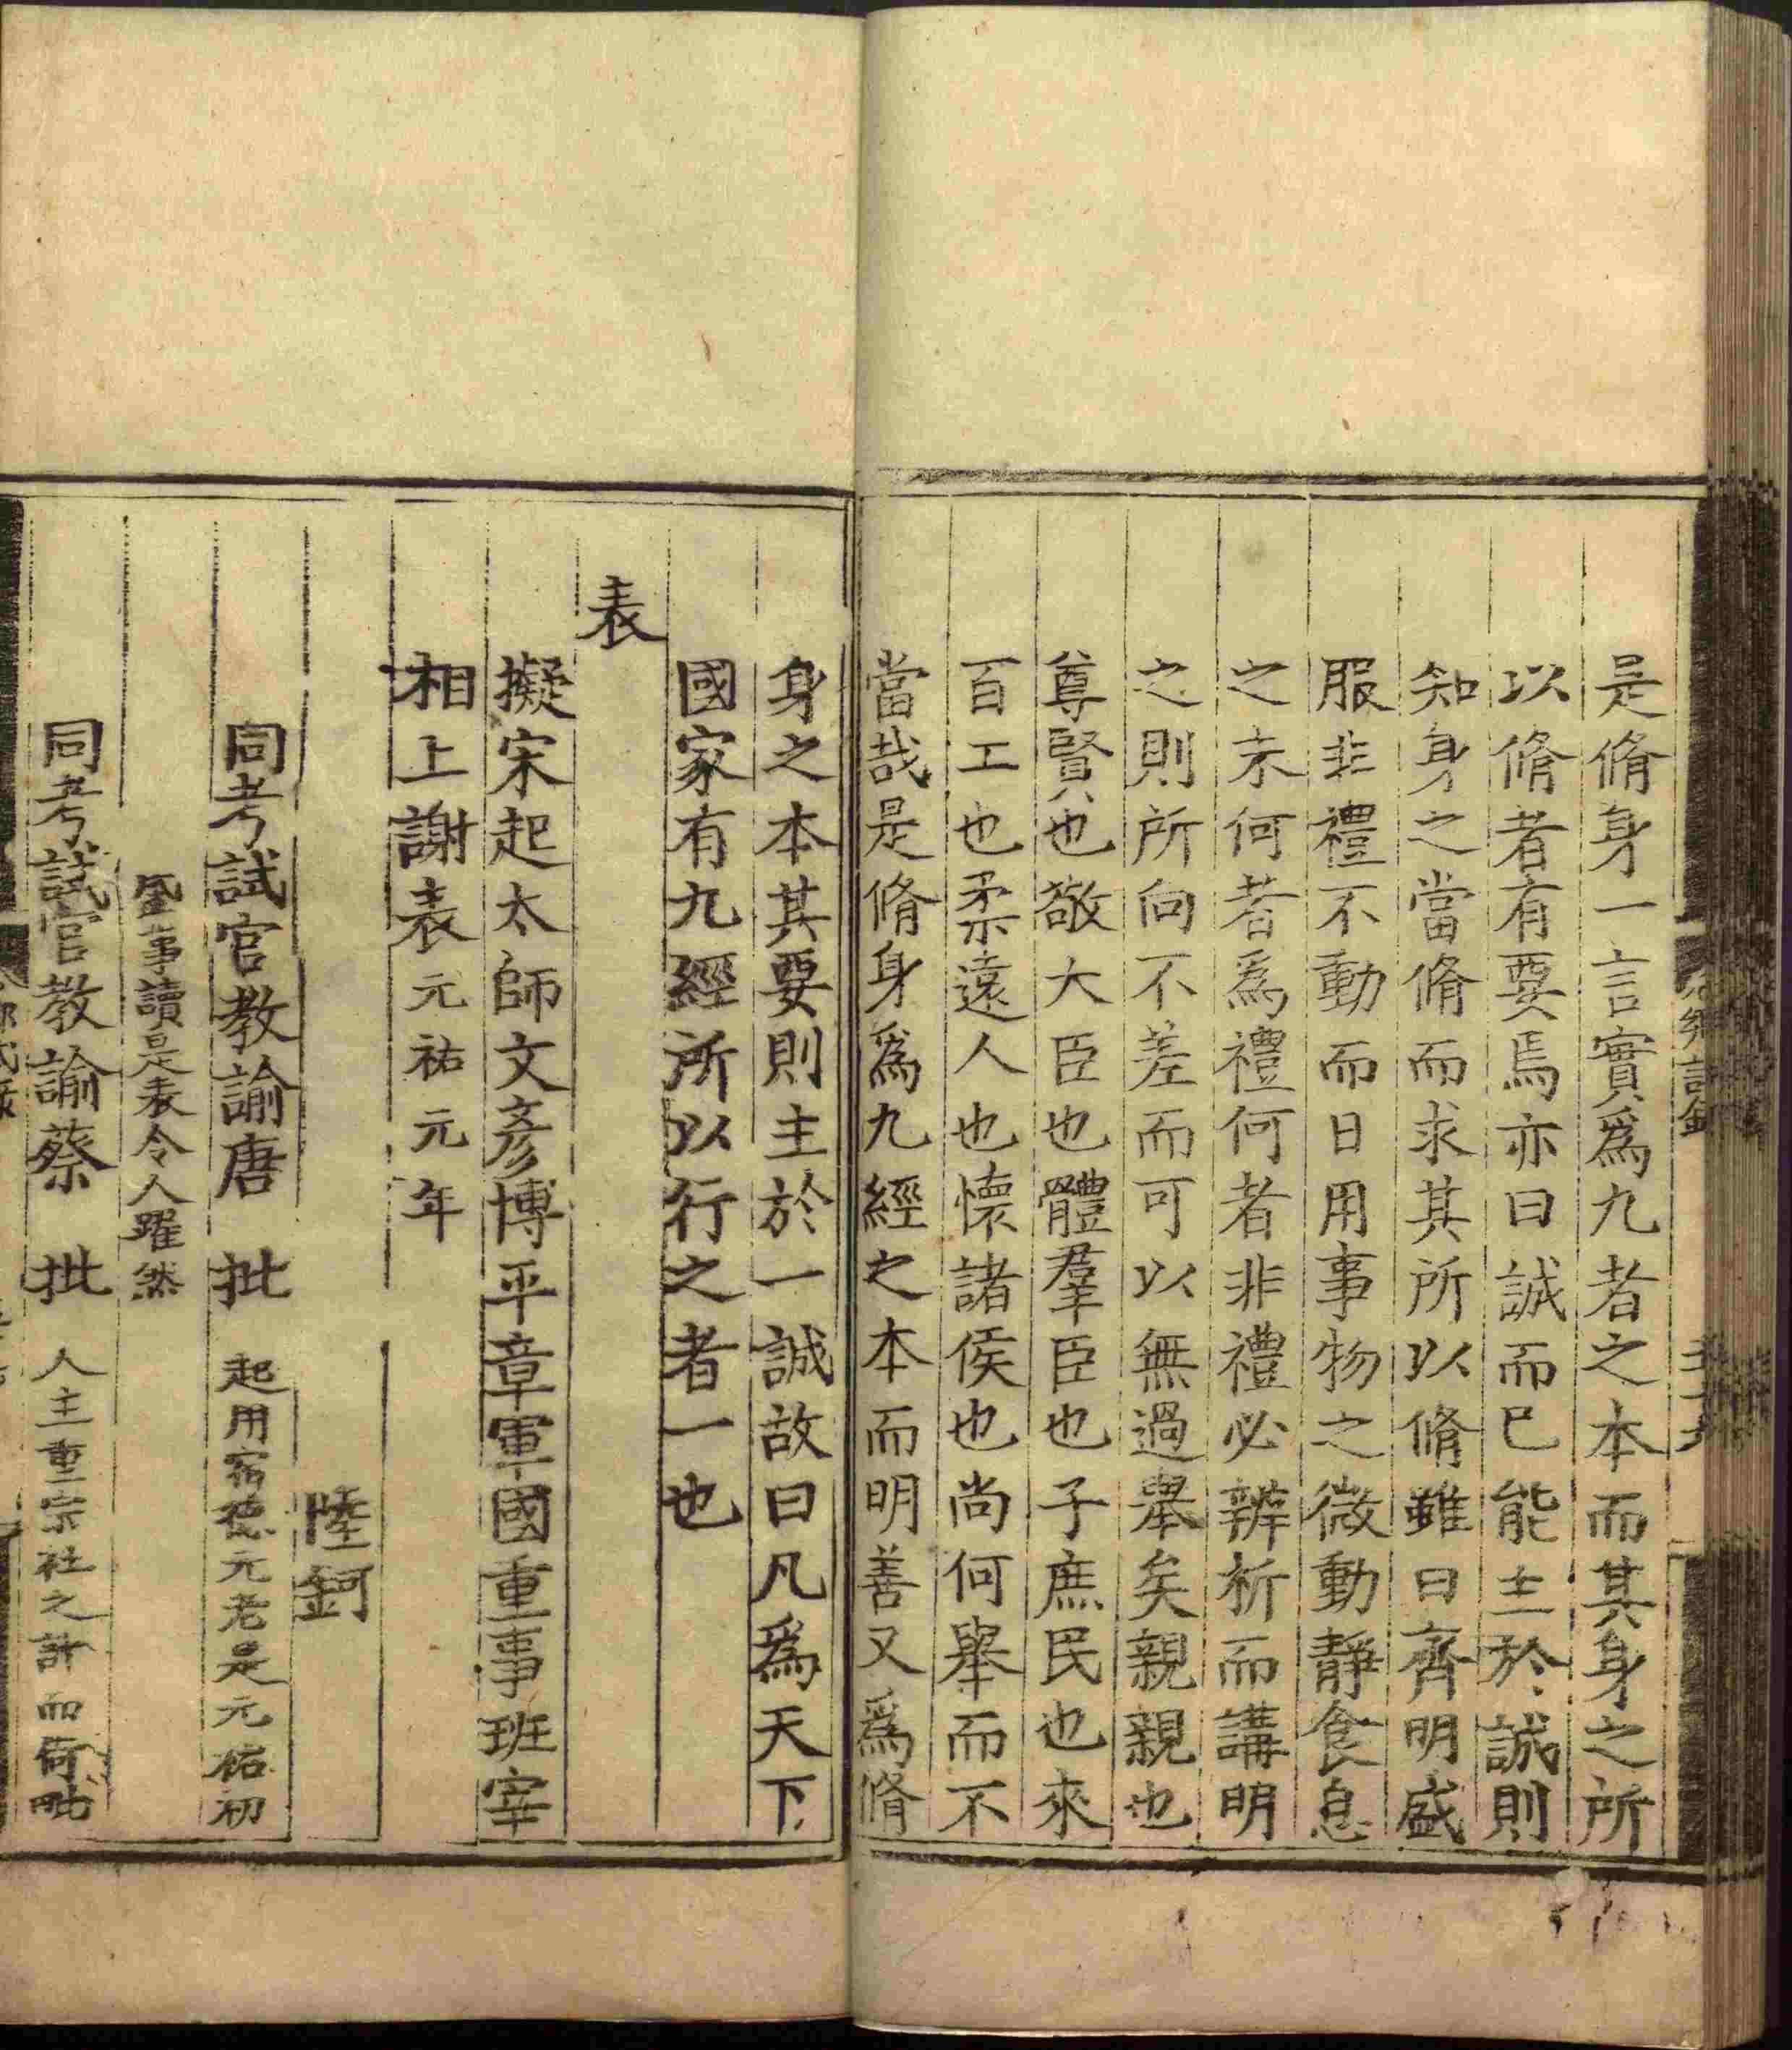 是脩身一言實爲九者之本而其身之所
以脩者有要焉亦曰誠而已能主於誠則
知身之當脩而求其所以脩雖曰齊明盛
服非禮不動而日用事物之微動靜食息
之末何者爲禮何者非禮必辨析而講明
之則所向不差而可以無過舉矣親親也
尊賢也敬大臣也體羣臣也子庶民也來
百工也柔遠人也懷諸侯也尚何舉而不
當哉是脩身爲九經之本而明善又爲脩
身之本其要則主於一誠故曰凡爲天下
國家有九經所以行之者一也
表
擬宋起太師文彥博平章軍國重事班宰
相上謝表元祐元年
陸釴
同考試官教諭唐 批 起用宿德元老是元祐初
事讀是表令人躍然
同考試官教諭蔡 批 人主重宗社之計而